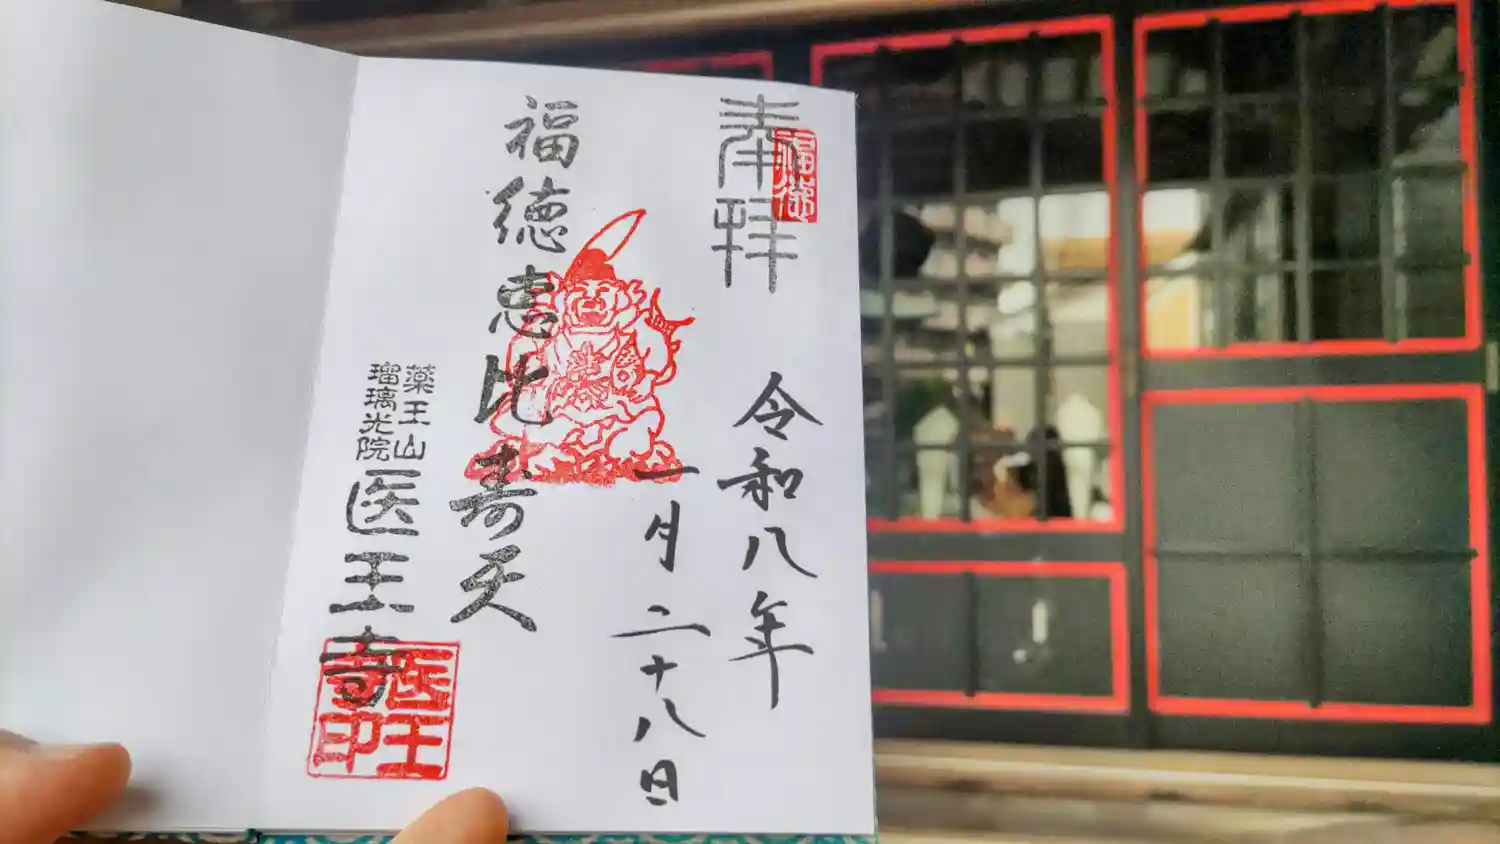 奉拝
令和八年
一月二十八日
福徳恵比寿天
薬王山
瑠璃光院
医王寺
医王
寺印